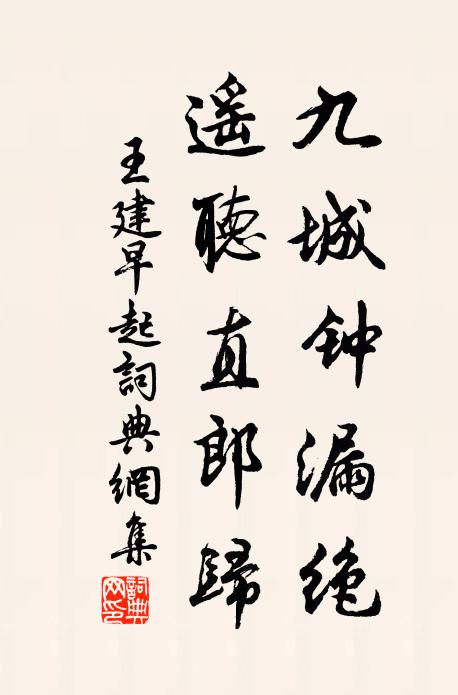 九城钟漏绝
遥聽直郎歸
王建早起詞典網集
詞典网印